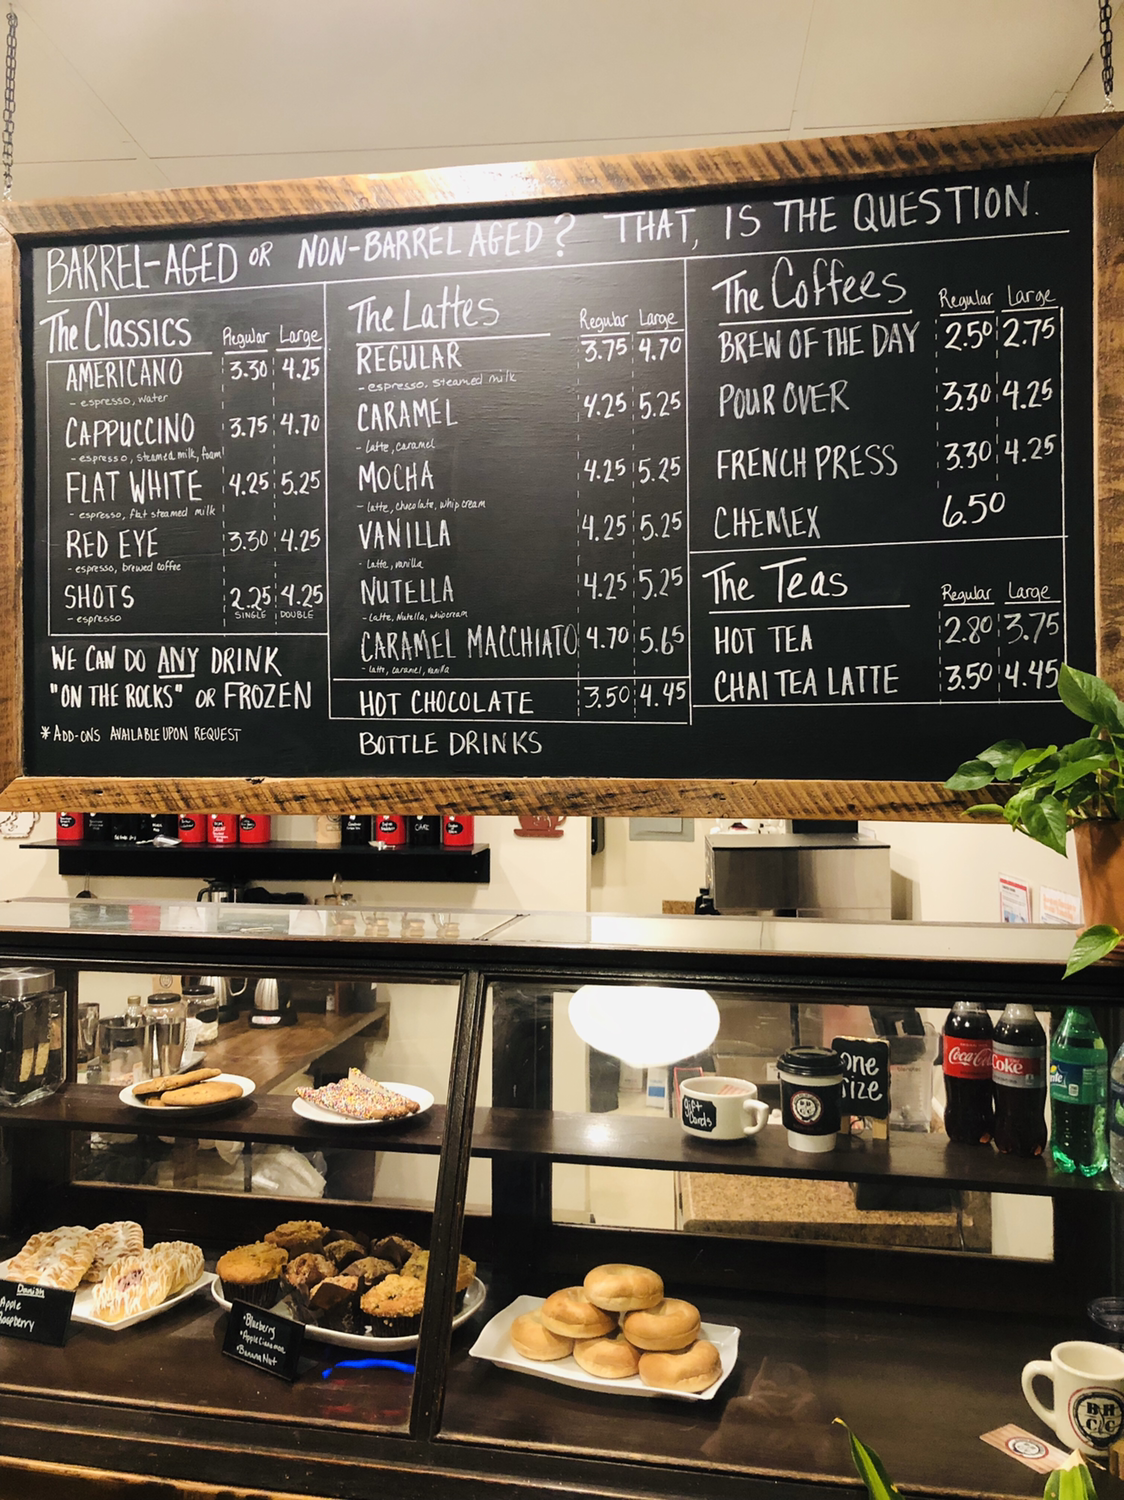 BARREL-AGED OR NON-BARREL AGED? THAT, IS THE QUESTION.
The Classics Regular Large
AMERICANO 3.30 4.25
- espresso, water
CAPPUCCINO 3.75 4.70
- espresso, steamed milk, foam
FLAT WHITE 4.25 5.25
- espresso, flat steamed milk
RED EYE 3.30 4.25
- espresso, brewed coffee
SHOTS 2.25 4.25
- espresso SINGLE DOUBLE
WE CAN DO ANY DRINK
"ON THE ROCKS" OR FROZEN
*ADD-ONS AVAILABLE UPON REQUEST
The Lattes Regular Large
REGULAR 3.75 4.70
- espresso, steamed milk
CARAMEL 4.25 5.25
- latte, caramel
MOCHA 4.25 5.25
- latte, chocolate, whip cream
VANILLA 4.25 5.25
- latte, vanilla
NUTELLA 4.25 5.25
- latte, Nutella, whipcream
CARAMEL MACCHIATO 4.70 5.65
- latte, caramel, vanilla
HOT CHOCOLATE 3.50 4.45
BOTTLE DRINKS
The Coffees Regular Large
BREW OF THE DAY 2.50 2.75
POUR OVER 3.30 4.25
FRENCH PRESS 3.30 4.25
CHEMEX 6.50
The Teas Regular Large
HOT TEA 2.80 3.75
CHAI TEA LATTE 3.50 4.45
one
size
Gift
Cards
Coca-Cola
Coke
Sprite
Danish
Apple
Raspberry
•Blueberry
•Apple Cinnamon
•Banana Nut
BH
C&C